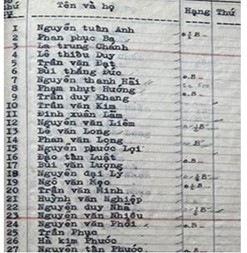 Tên và họ Hạng Thứ
1 Nguyễn tuấn Anh
2 Phan phục Ba
3 La trung Chánh
4 Lê thiếu Duy
5 Trần văn Đạt
6 Bùi thắng Đức
7 Nguyễn thành Hải
8 Phạm nhựt Hương
9 Trần duy Khang
10 Trần văn Kim
11 Đinh xuân Lãm
12 Nguyễn văn Liêm
13 Lê văn Long
14 Phan văn Long
15 Nguyễn phước Lợi
16 Đào tấn Luật
17 Bùi văn Lượng
18 Nguyễn đại Lý
19 Ngô văn Mẹo
20 Trần văn Minh
21 Huỳnh văn Nghiệp
22 Nguyễn duy Nhã
23 Nguyễn văn Nhiều
24 Nguyễn văn Phối
25 Trần Phục
26 Hà kim Phước
27 Nguyễn tấn Phước